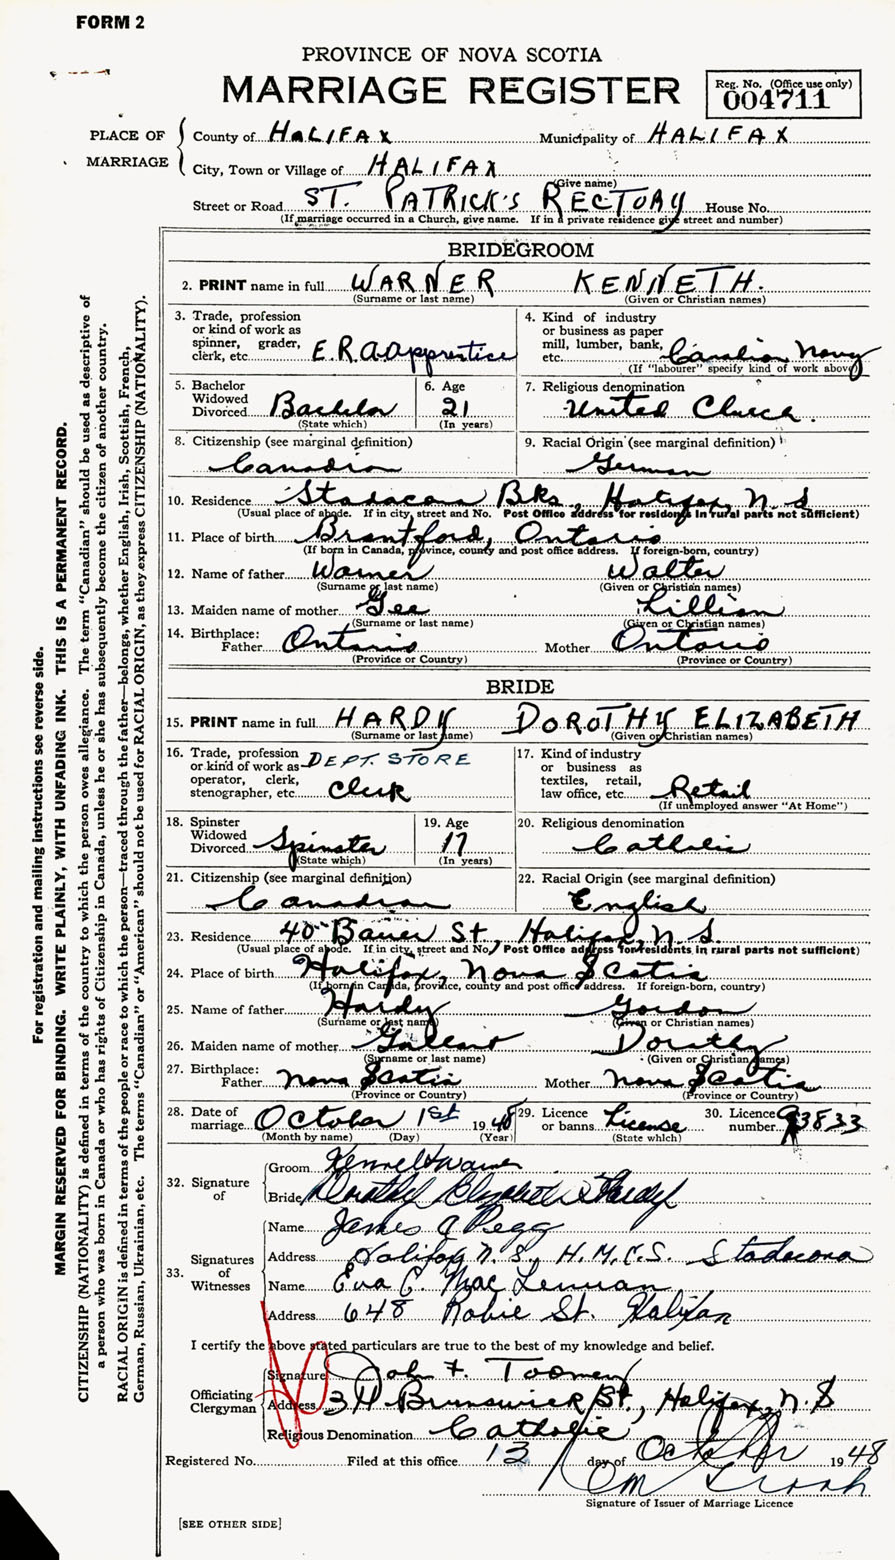 FORM 2
PROVINCE OF NOVA SCOTIA
MARRIAGE REGISTER
Reg. No. (Office use only)
004711
PLACE OF MARRIAGE
County of HALIFAX Municipality of HALIFAX
City, Town or Village of HALIFAX
(Give name)
Street or Road ST. PATRICK'S RECTORY House No.
(If marriage occurred in a Church, give name. If in a private residence give street and number)
BRIDEGROOM
2. PRINT name in full WARNER KENNETH.
(Surname or last name) (Given or Christian names)
3. Trade, profession or kind of work as spinner, grader, clerk, etc. E.R.A apprentice
4. Kind of industry or business as paper mill, lumber, bank, etc. Canadian Navy
(If "labourer" specify kind of work above)
5. Bachelor Widowed Divorced Bachelor
(State which)
6. Age 21
(In years)
7. Religious denomination United Church.
8. Citizenship (see marginal definition) Canadian
9. Racial Origin (see marginal definition) German
10. Residence Stadacona Bks, Halifax, N.S
(Usual place of abode. If in city, street and No. Post Office address for residents in rural parts not sufficient)
11. Place of birth Brantford, Ontario
(If born in Canada, province, county and post office address. If foreign-born, country)
12. Name of father Warner Walter
(Surname or last name) (Given or Christian names)
13. Maiden name of mother Gee Lillian
(Surname or last name) (Given or Christian names)
14. Birthplace: Father Ontario Mother Ontario
(Province or Country) (Province or Country)
BRIDE
15. PRINT name in full HARDY DOROTHY ELIZABETH
(Surname or last name) (Given or Christian names)
16. Trade, profession or kind of work as operator, clerk, stenographer, etc. DEPT. STORE Clerk
17. Kind of industry or business as textiles, retail, law office, etc. Retail
(If unemployed answer "At Home")
18. Spinster Widowed Divorced Spinster
(State which)
19. Age 17
(In years)
20. Religious denomination Catholic
21. Citizenship (see marginal definition) Canadian
22. Racial Origin (see marginal definition) English
23. Residence 40 Bauer St, Halifax, N.S.
(Usual place of abode. If in city, street and No. Post Office address for residents in rural parts not sufficient)
24. Place of birth Halifax, Nova Scotia
(If born in Canada, province, county and post office address. If foreign-born, country)
25. Name of father Hardy Gordon
(Surname or last name) (Given or Christian names)
26. Maiden name of mother Dorothy
(Surname or last name) (Given or Christian names)
27. Birthplace: Father Nova Scotia Mother Nova Scotia
(Province or Country) (Province or Country)
28. Date of marriage October 1st 1948
(Month by name) (Day) (Year)
29. Licence or banns License
(State which)
30. Licence number 93833
32. Signature of
Groom Kenneth Warner
Bride Dorothy Elizabeth Hardy
33. Signatures of Witnesses
Name James A Pegg
Address Halifax N.S., H.M.C.S. Stadacona
Name Eva C. MacLennan
Address 648 Robie St. Halifax
I certify the above stated particulars are true to the best of my knowledge and belief.
Officiating Clergyman
Signature John F. Toomey
Address Brunswick St., Halifax, N.S
Religious Denomination Catholic
Registered No. Filed at this office 13 day of October 1948
Signature of Issuer of Marriage Licence
[SEE OTHER SIDE]
For registration and mailing instructions see reverse side.
MARGIN RESERVED FOR BINDING. WRITE PLAINLY, WITH UNFADING INK. THIS IS A PERMANENT RECORD.
CITIZENSHIP (NATIONALITY) is defined in terms of the country to which the person owes allegiance. The term "Canadian" should be used as descriptive of
a person who was born in Canada or who has rights of Citizenship in Canada, unless he or she has subsequently become the citizen of another country.
RACIAL ORIGIN is defined in terms of the people or race to which the person—traced through the father—belongs, whether English, Irish, Scottish, French,
German, Russian, Ukrainian, etc. The terms "Canadian" or "American" should not be used for RACIAL ORIGIN, as they express CITIZENSHIP (NATIONALITY).